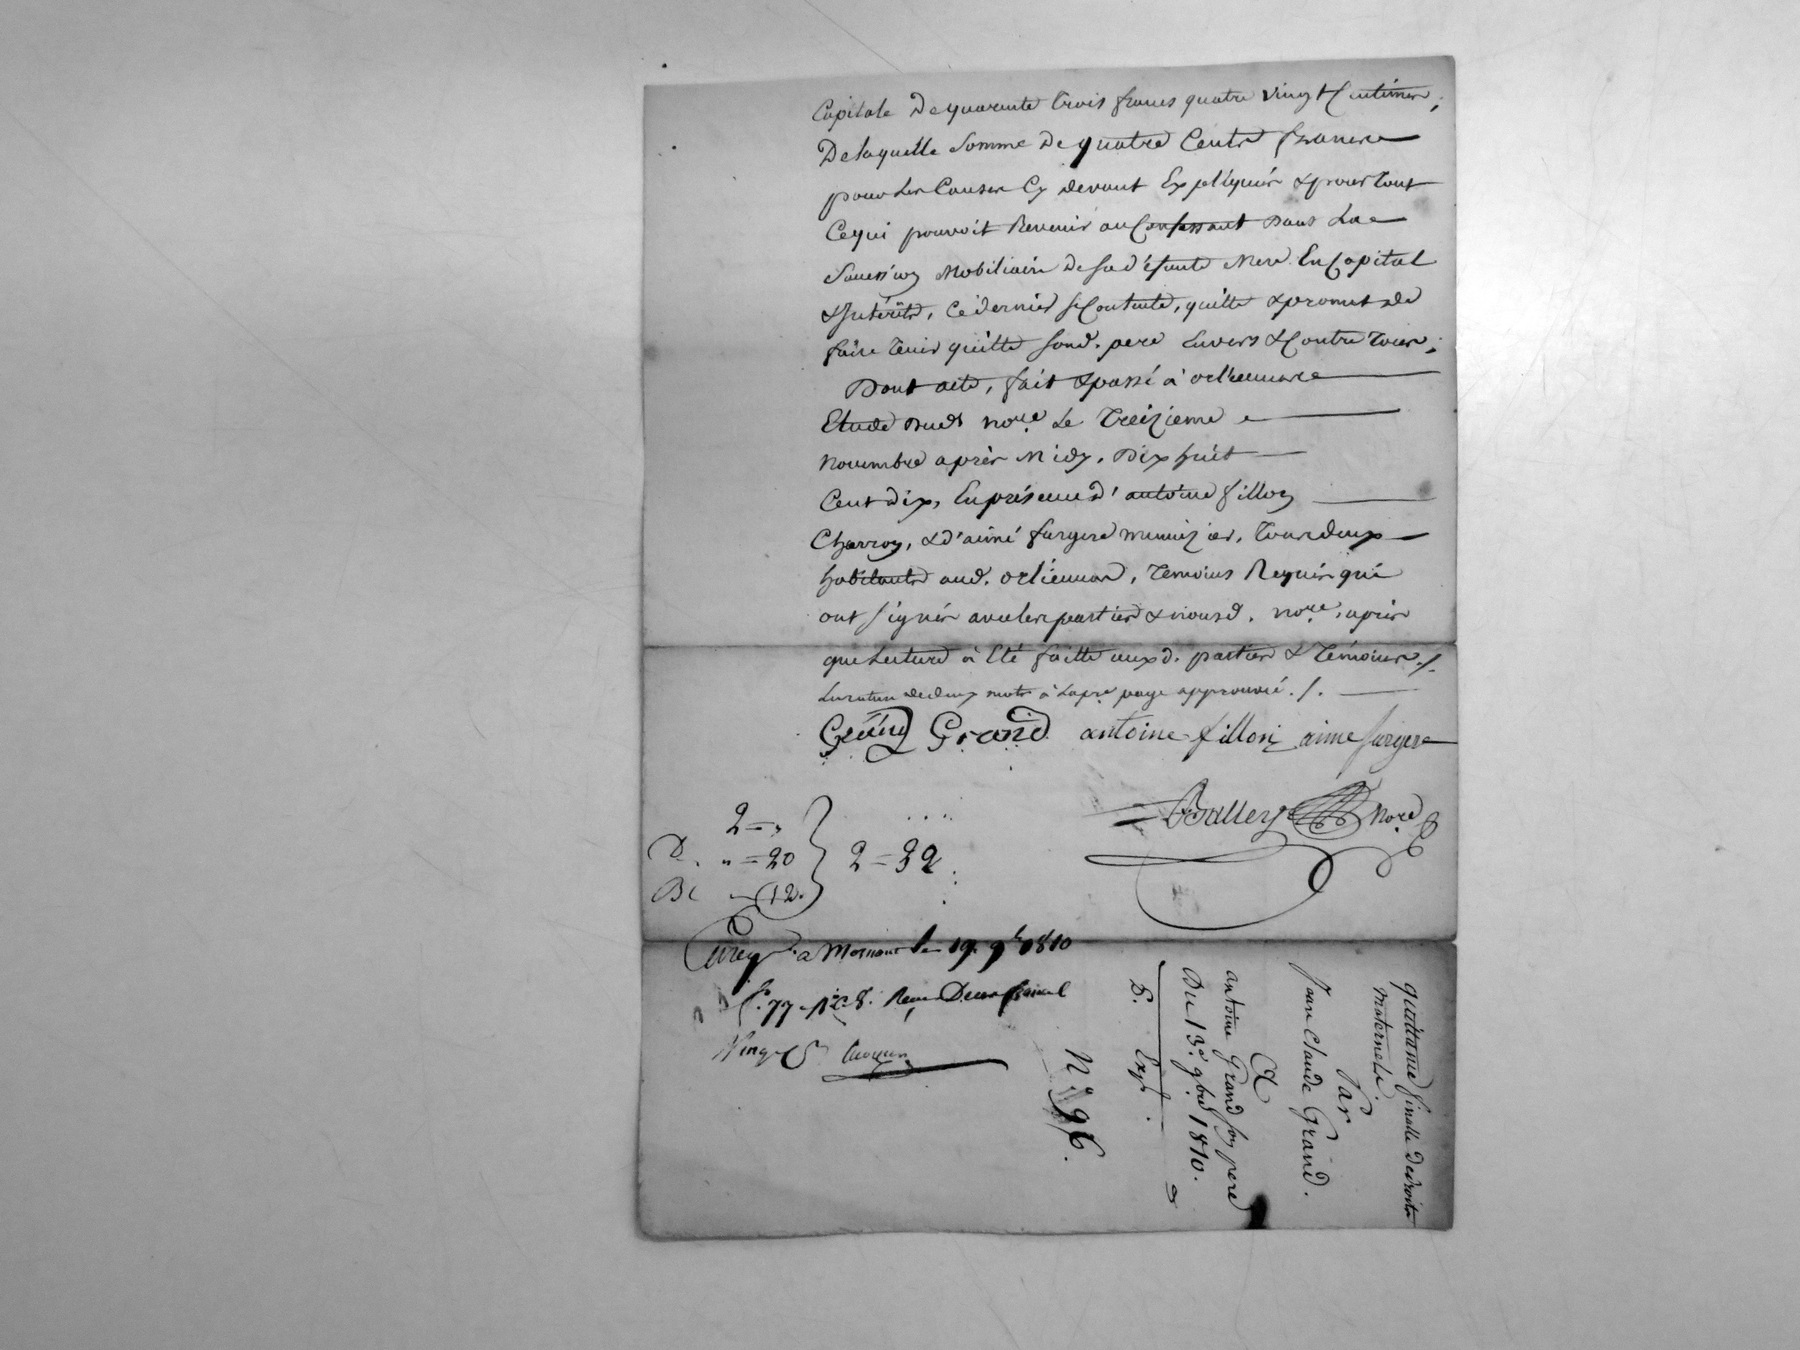 Capitale De quarente trois francs quatre Vingt Centimes ;
De laquelle Somme De quatre Cents francs
pour les Causes Cy devant Expliqués & pour tout
Ce qui pouvoit Revenir au Confessant Dans La
Succession Mobiliaire De sa d'éfunte Mere En Capital
& Intérêts, Ce dernier se Contente, quitte & promet de
faire tenir quitte sond. pere Envers & Contre tous ;
Dont acte, fait & passé à orliennas
Etude Dud. nore. Le Treizieme
Novembre après Midy, Dix huit
Cent Dix, En présence d'antoine fillon
Charron, & d'aimé furgere menuizier, Tous deux
habitants aud. orliennas, Temoins Requis qui
ont signés avec les parties & nousd. nore., après
que Lecture à Eté faitte auxd. parties & Témoins ./.
La rature de deux mots à La pre page approuvée ./.
Grand Grand antoine fillon aime furgere
Balley Nore
2 = "
D. " = 20
Be " = 12.
2 = 32
Enreg. a Mornant le 19. 9b 1810
f. 77 Ro C. 8. Reçu Deux francs
Vingt C.
quittance finalle de droits
Maternels
Par
Jean Claude Grand.
A
antoine Grand son pere
Du 13e. 9bre 1810.
D. Exp.
No 96.